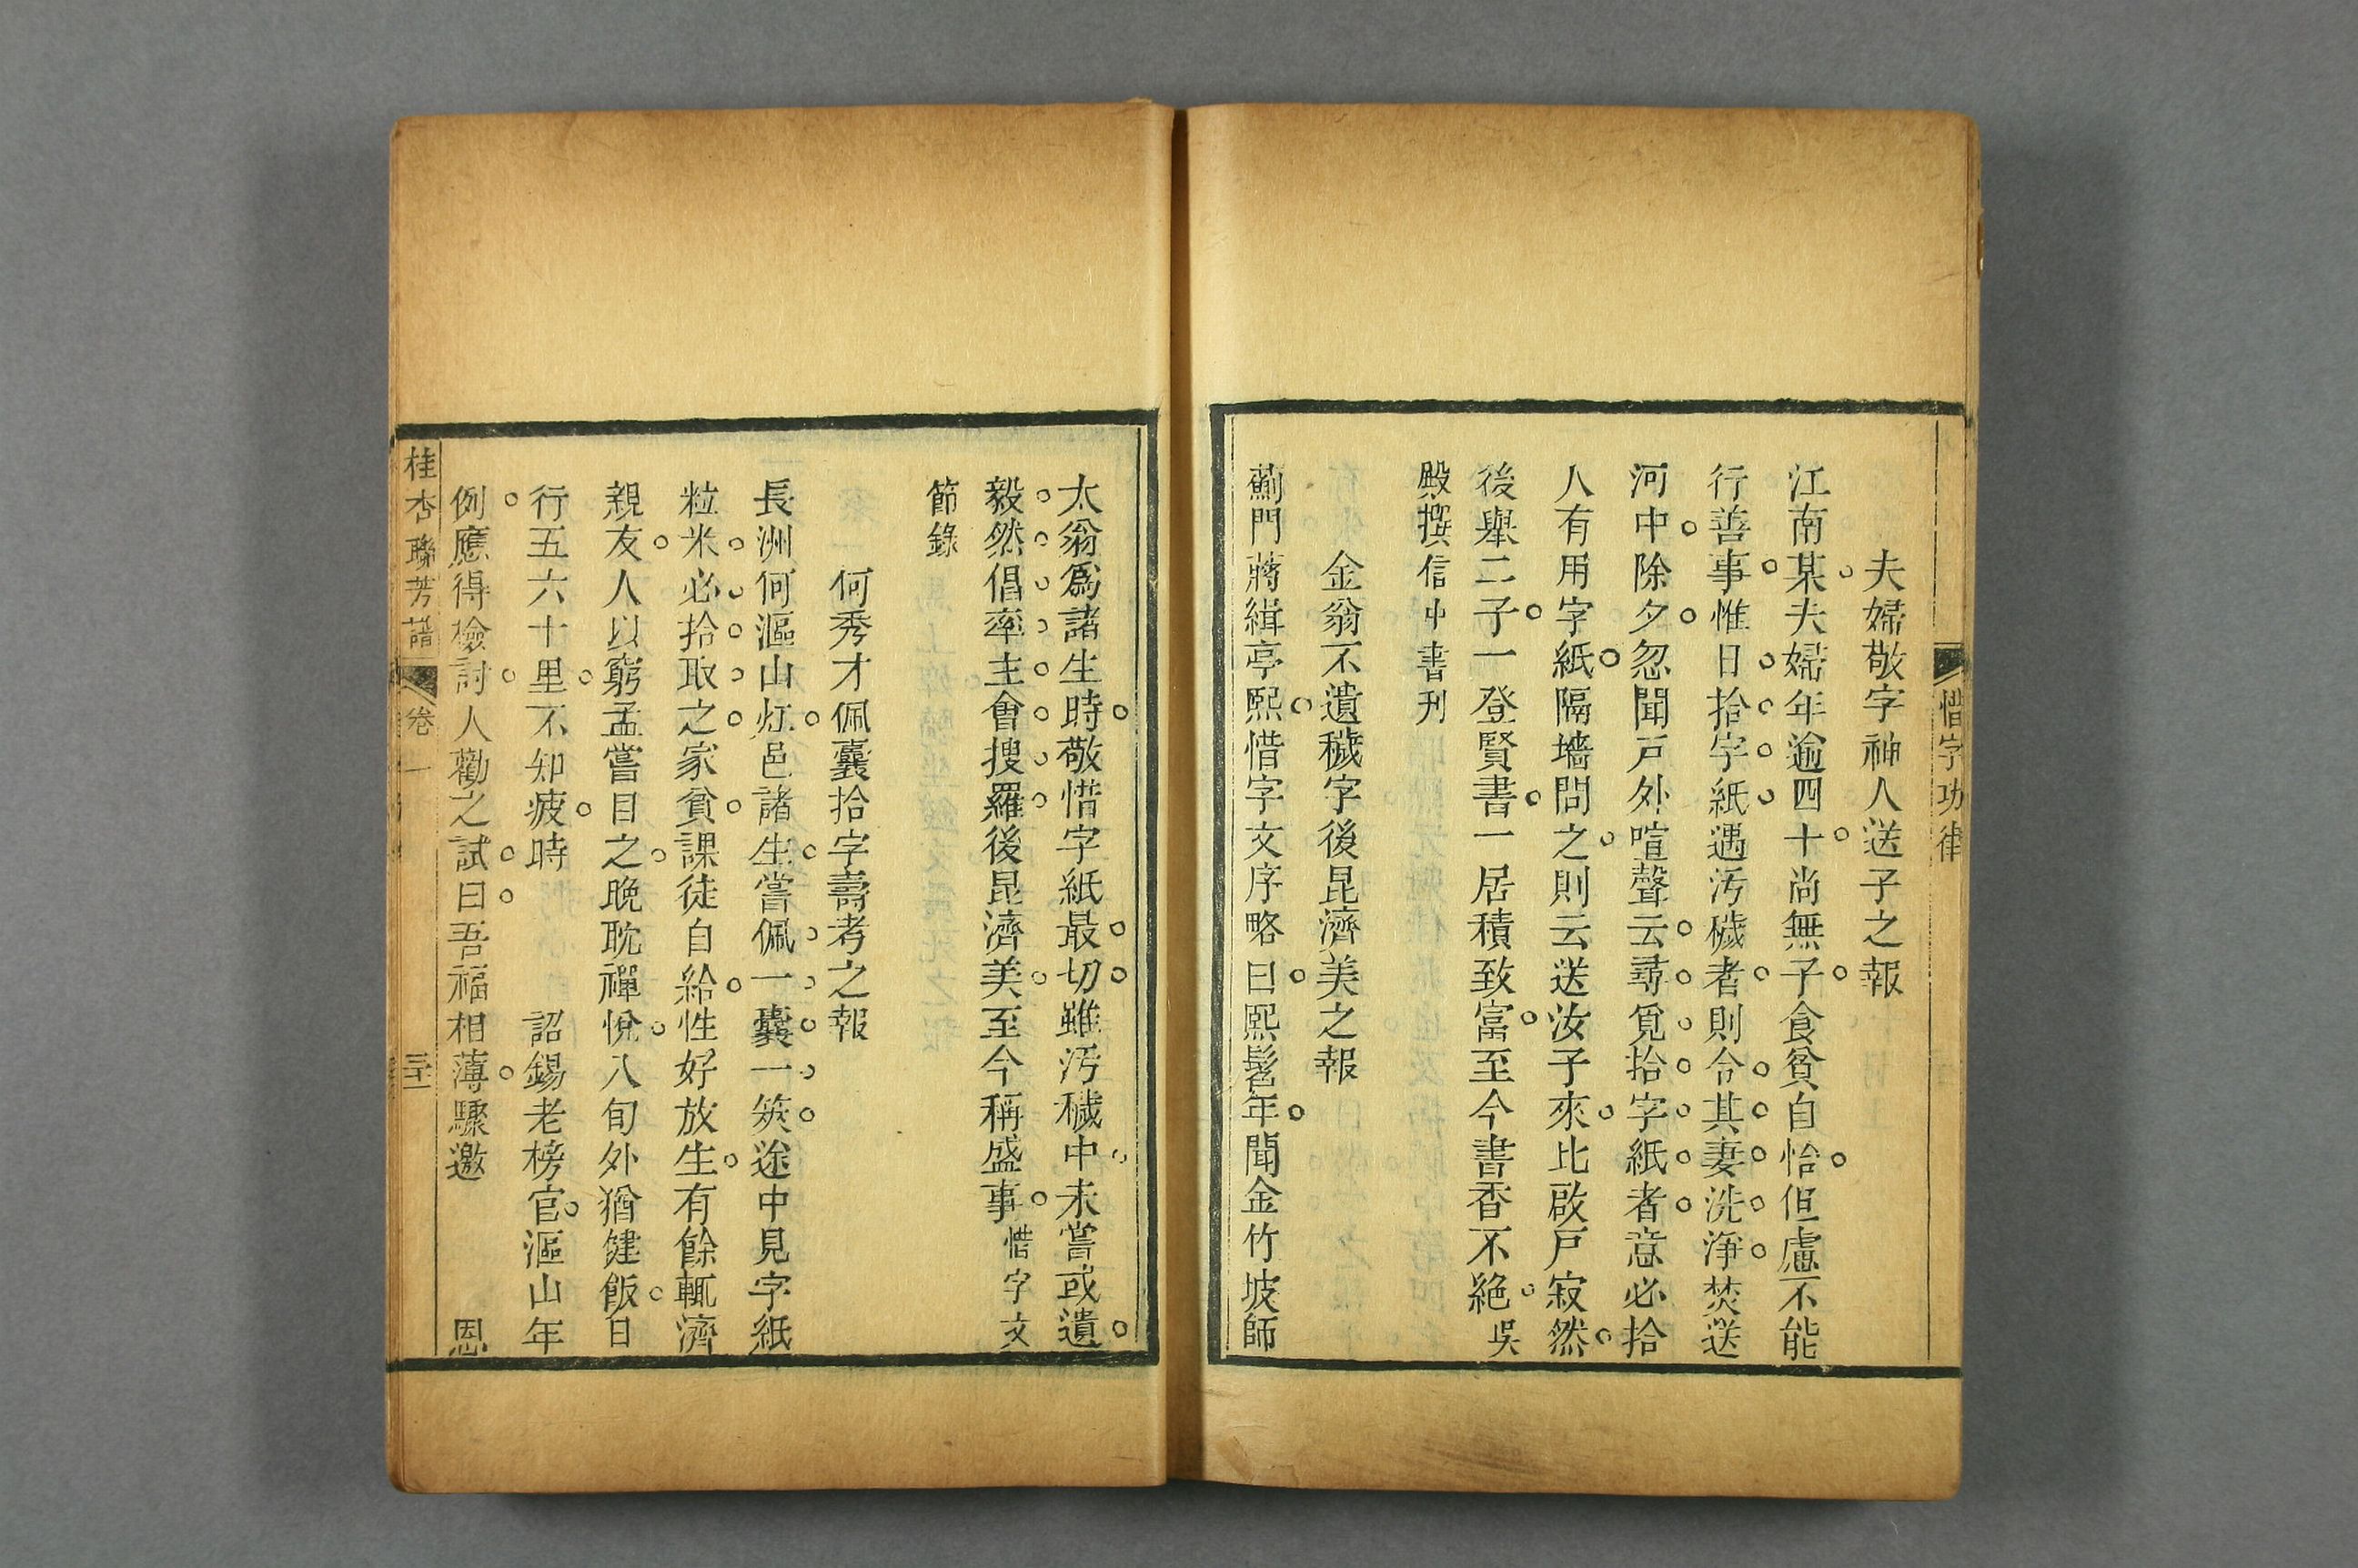 惜字功律
夫婦敬字神人送子之報
江南某夫婦年逾四十尚無子食貧自恰但慮不能
行善事惟日拾字紙遇汚穢者則令其妻洗淨焚送
河中除夕忽聞戸外喧聲云尋覓拾字紙者意必拾
人有用字紙隔墻問之則云送汝子來比啟戸寂然
後舉二子一登賢書一居積致富至今書香不絶吳
殿撰信中書刋
金翁不遺穢字後昆濟美之報
薊門蔣緝亭熙惜字文序略曰熙髫年聞金竹坡師
太翁爲諸生時敬惜字紙最切雖汚穢中未嘗或遺
毅然倡率主會搜羅後昆濟美至今稱盛事惜字文
節錄
何秀才佩囊拾字壽考之報
長洲何漚山灴邑諸生嘗佩一囊一筴途中見字紙
粒米必拾取之家貧課徒自給性好放生有餘輒濟
親友人以窮孟嘗目之晚耽禪悅八旬外猶健飯日
行五六十里不知疲時 詔錫老榜官漚山年
例應得檢討人勸之試曰吾福相薄驟邀 恩
桂杏聯芳譜 卷一 三十一